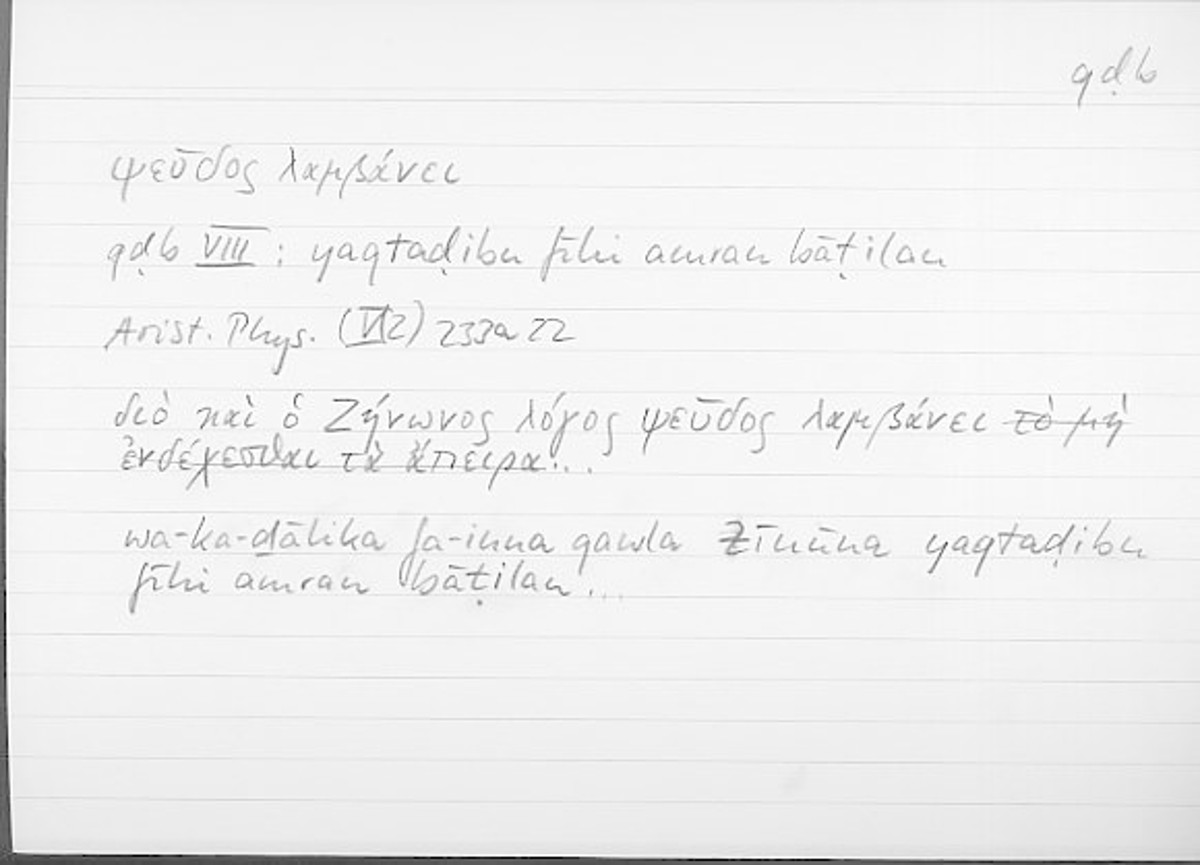 qḍb
ψεῦδος λαμβάνει
qḍb VIII : yaqtaḍibu fīhi amran bāṭilan
Arist. Phys. (VI2) 233a22
διὸ καὶ ὁ Ζήνωνος λόγος ψεῦδος λαμβάνει τὸ μὴ
ἐνδέχεσθαι τὰ ἄπειρα...
wa-ka-ḏālika fa-inna qawla Zīnūna yaqtaḍibu
fīhi amran bāṭilan...